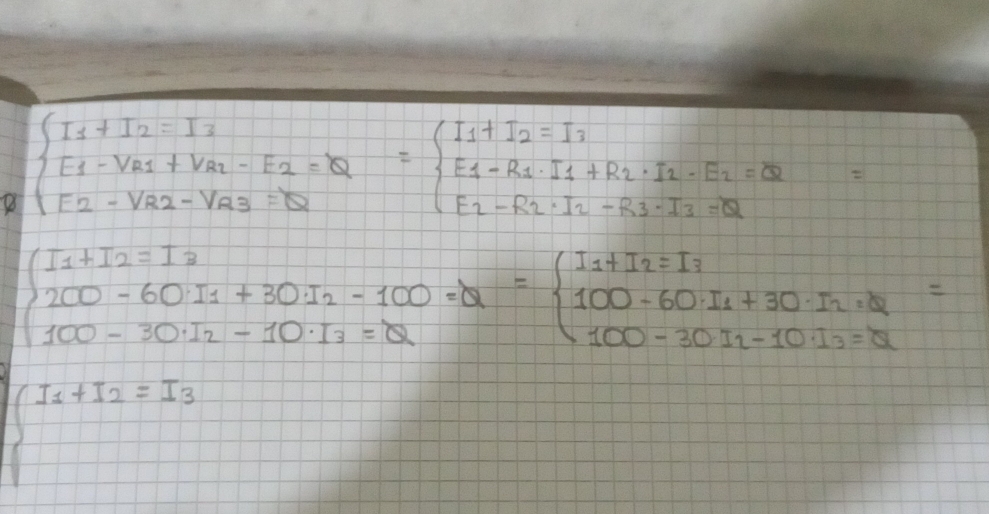 I1 + I2 = I3
E1 - VR1 + VR2 - E2 = 0
E2 - VR2 - VR3 = 0
=
I1 + I2 = I3
E1 - R1 · I1 + R2 · I2 - E2 = 0
E2 - R2 · I2 - R3 · I3 = 0
=
I1 + I2 = I3
200 - 60 · I1 + 30 · I2 - 100 = 0
100 - 30 · I2 - 10 · I3 = 0
=
I1 + I2 = I3
100 - 60 · I1 + 30 · I2 = 0
100 - 30 · I2 - 10 · I3 = 0
=
I1 + I2 = I3